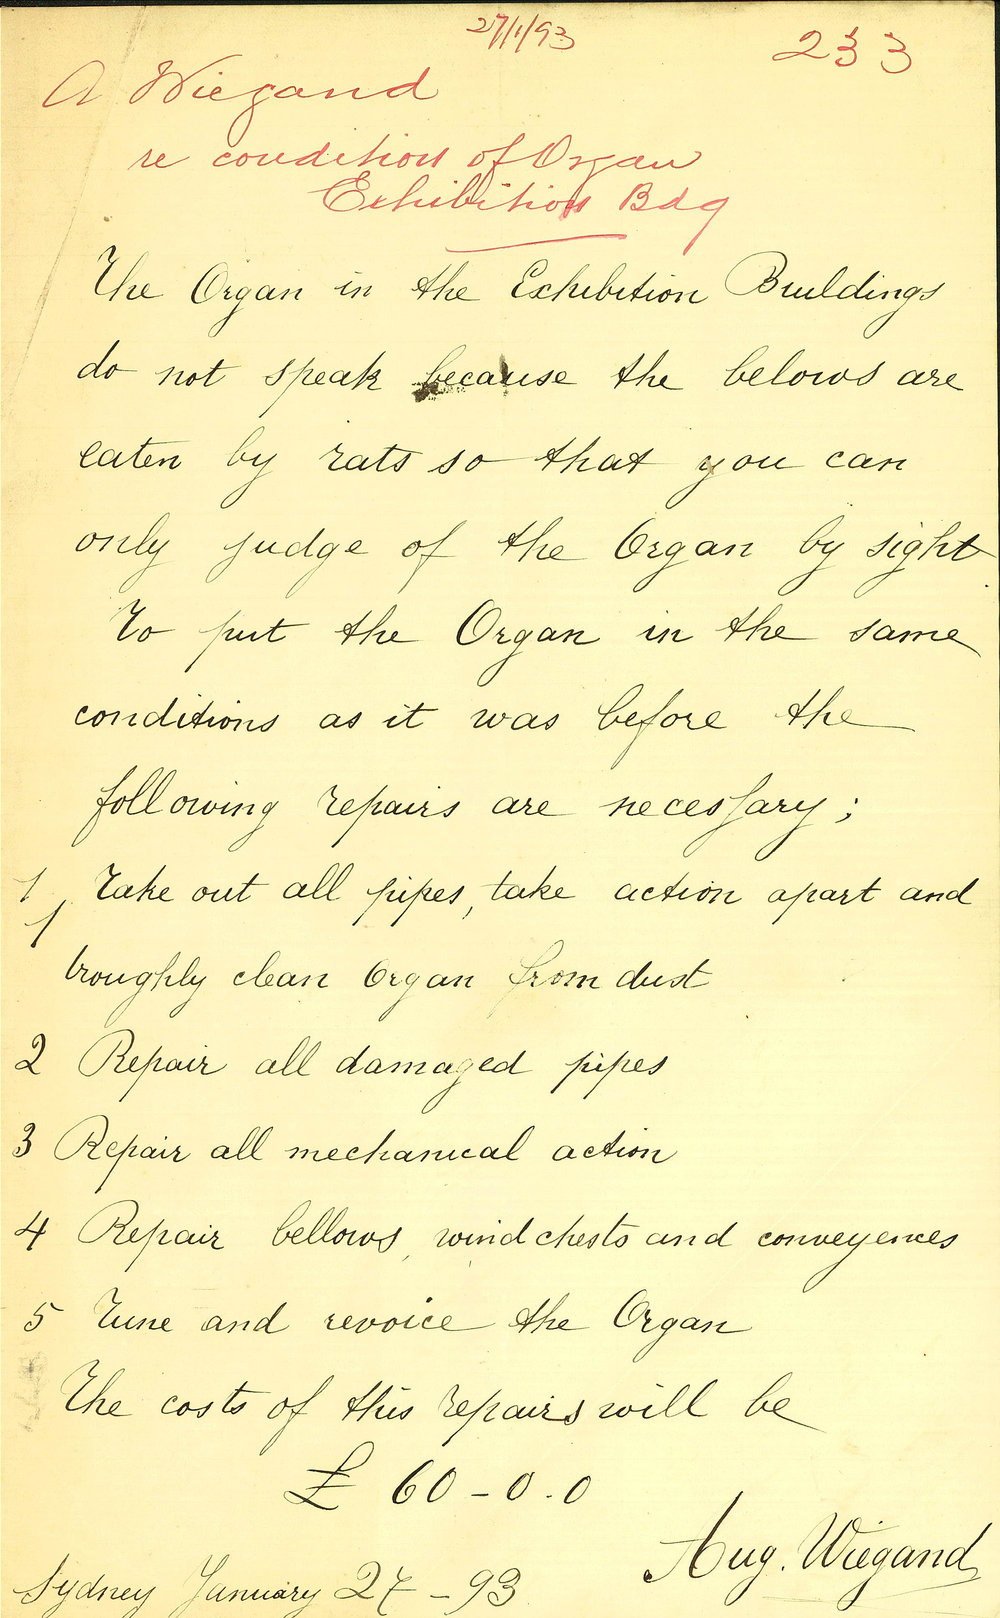 27/1/93
233
A Wiegand
re condition of Organ
Exhibition Bdg
The Organ in the Exhibition Buildings
do not speak because the belows are
eaten by rats so that you can
only judge of the Organ by sight
To put the Organ in the same
conditions as it was before the
following repairs are necessary;
1 Take out all pipes, take action apart and
troughly clean Organ from dust
2 Repair all damaged pipes
3 Repair all mechanical action
4 Repair bellows, windchests and conveyences
5 Tune and revoice the Organ
The costs of this repairs will be
£ 60-0.0
Aug. Wiegand
Sydney January 27-93